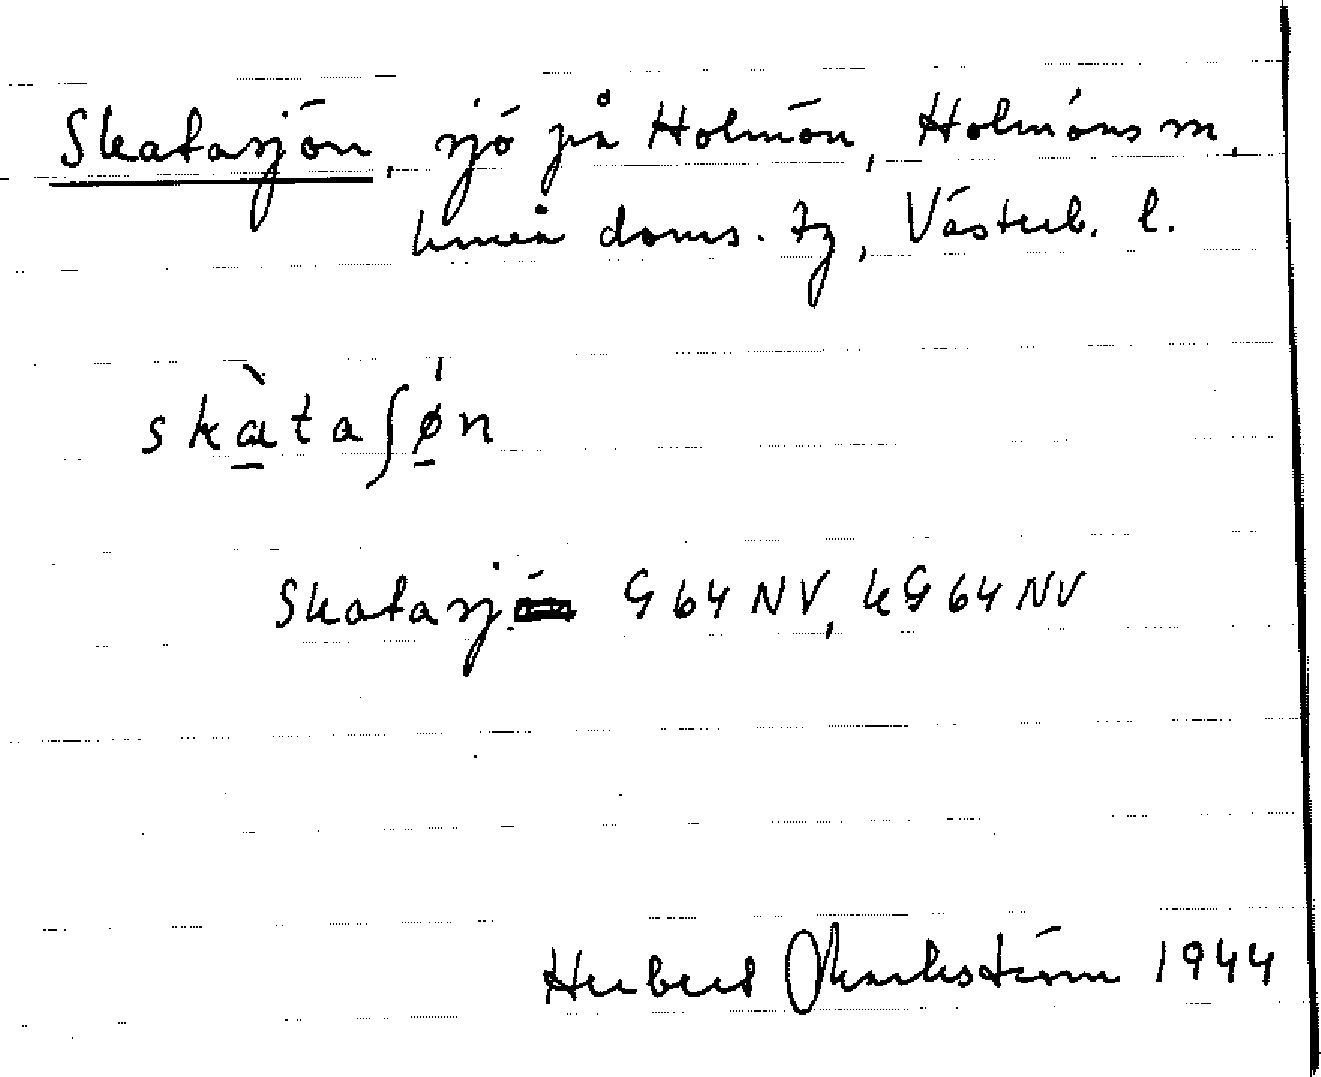 Skatasjön, sjö på Holmön, Holmöns sn,
Umeå doms. tg, Västerb. l.
skàtaʃøn
Skatasjön G 64 NV, kG 64 NV
Herbert Markström 1944